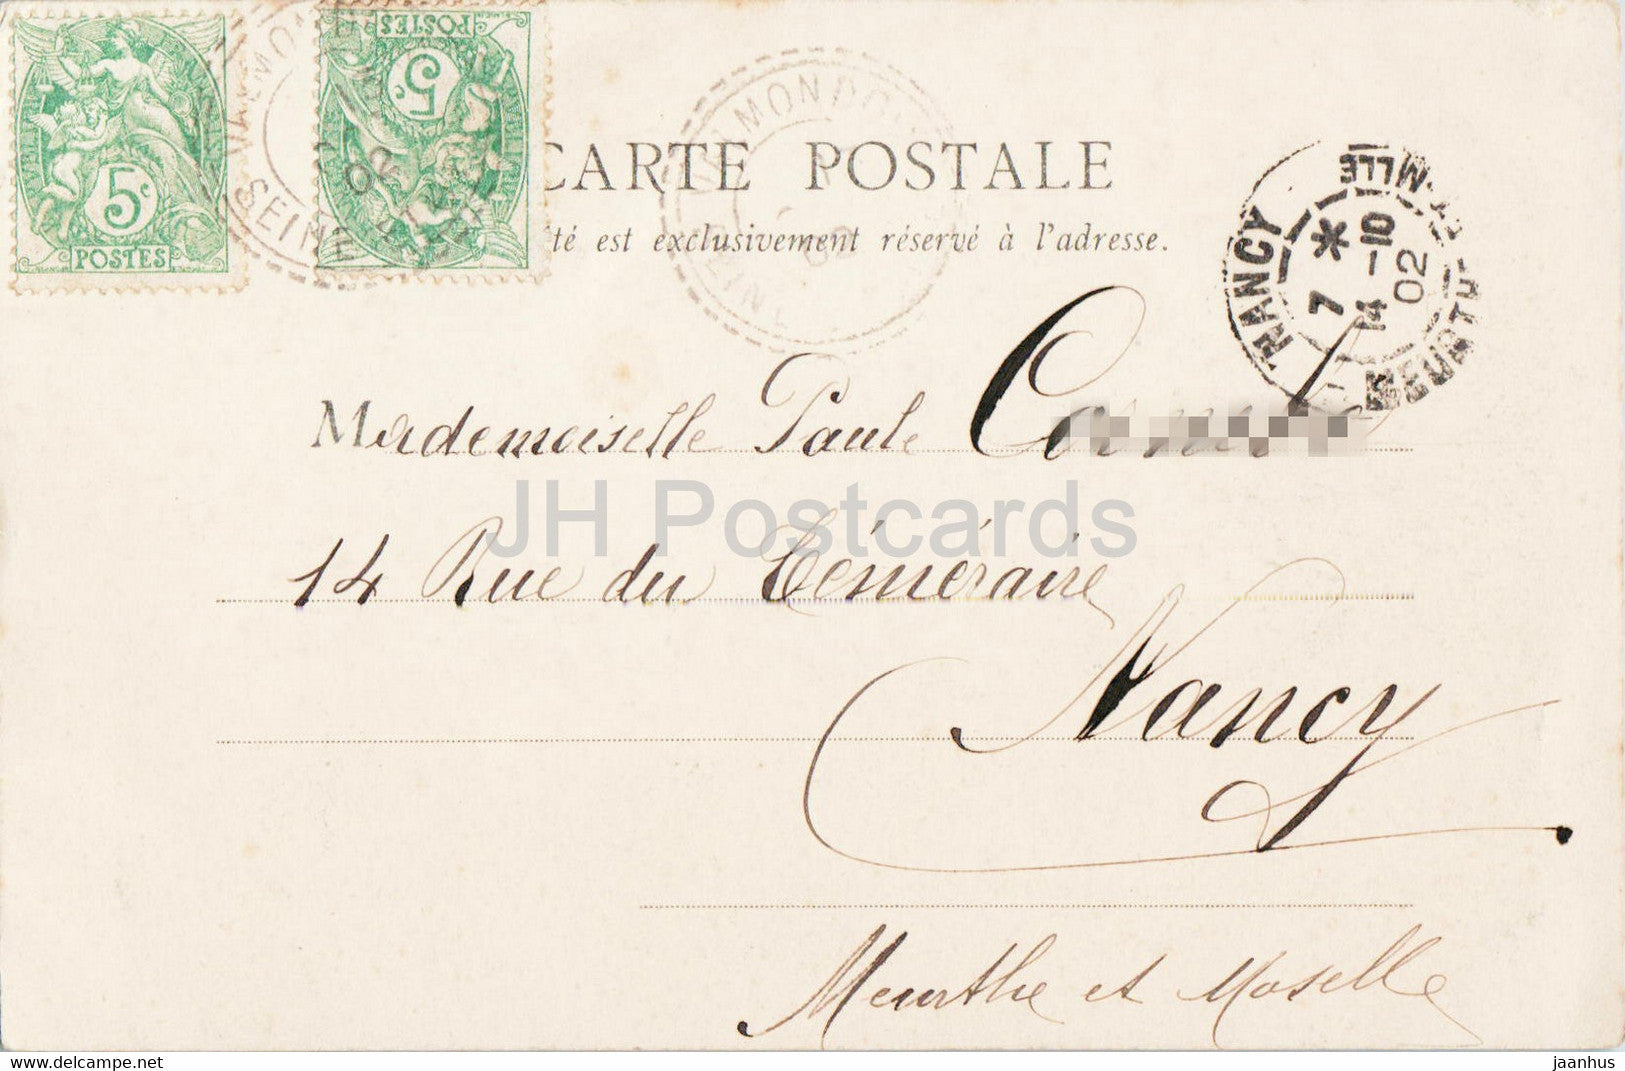 5c
POSTES
5c
POSTES
SEINE
02
CARTE POSTALE
té est exclusivement réservé à l'adresse.
NANCY
7 * 14 -10 02
Mademoiselle Paule
14 Rue du Téméraire
Nancy
Meurthe et Moselle
JH Postcards
www.delcampe.net
jaanhus